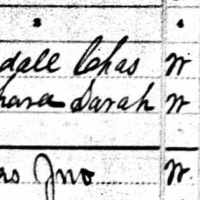 3 4
dall Chas W
hara Sarah W
as Jno W